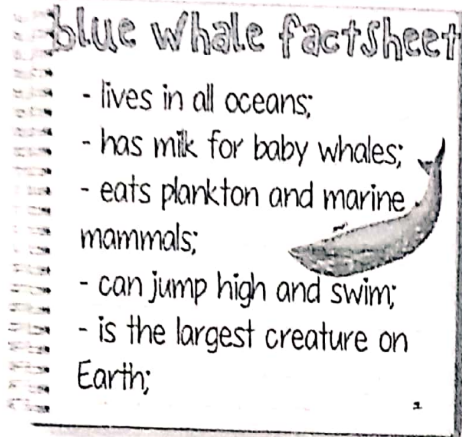 blue whale factsheet
- lives in all oceans;
- has milk for baby whales;
- eats plankton and marine
mammals;
- can jump high and swim;
- is the largest creature on
Earth;
1